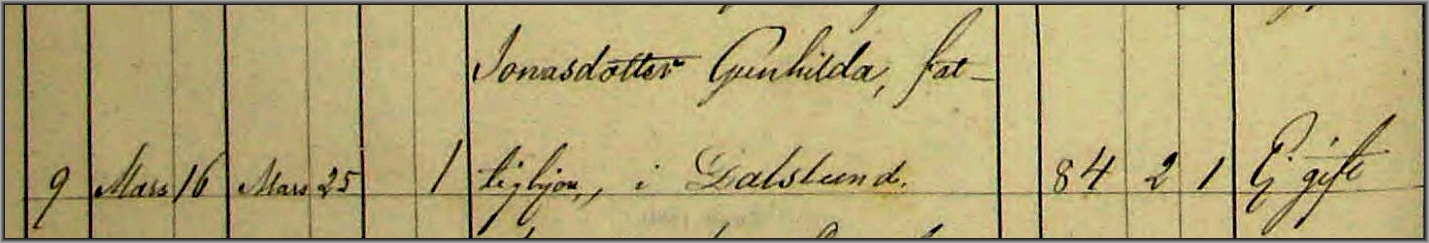 Jonasdotter Gunhilda, fat-
9 Mars 16 Mars 25 1 tighjon, i Dalslund. 84 2 1 Ej gift